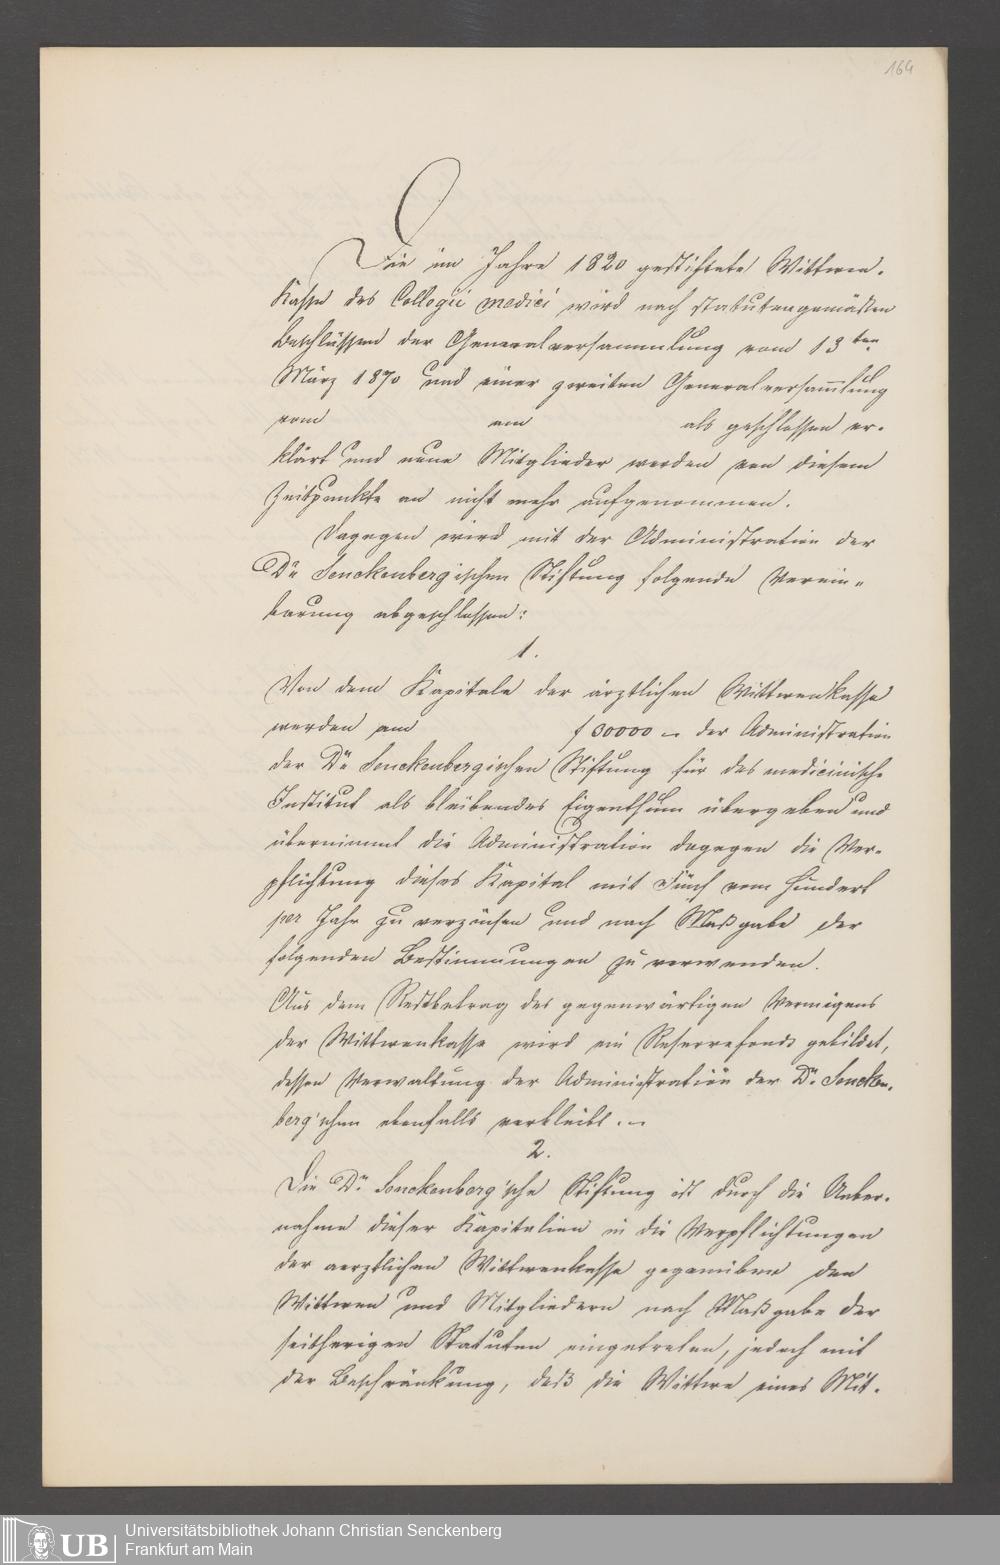 164
Die im Jahre 1820 gestiftete Wittwen-
Kasse des Collegii medici wird nach statutengemäßen
Beschlüssen der Generalversammlung vom 13ten
März 1870 und einer zweiten Generalversam̅lung
vom am als geschlossen er-
klärt und neue Mitglieder werden von diesem
Zeitpunkte an nicht mehr aufgenommen.
Dagegen wird mit der Administration der
Dr Senckenbergischen Stiftung folgende Verein-
barung abgeschlossen:
1.
Von dem Kapitale der ärztlichen Wittwenkasse
werden am f 30000 – der Administration
der Dr Senckenbergischen Stiftung für das medicinische
Institut als bleibendes Eigenthum übergeben und
übernimmt die Administration dagegen die Ver-
pflichtung dieses Kapital mit Fünf vom Hundert
per Jahr zu verzinsen und nach Maßgabe der
folgenden Bestimmungen zu verwenden.
Aus dem Restbetrag des gegenwärtigen Vermögens
der Wittwenkasse wird ein Reservefonds gebildet,
dessen Verwaltung der Administration der Dr. Sencken-
berg'schen ebenfalls verbleibt. –
2.
Die Dr. Senckenberg'sche Stiftung ist durch die Ueber-
nahme dieser Kapitalien in die Verpflichtungen
der aerztlichen Wittwenkasse gegenüber den
Wittwen und Mitgliedern nach Maßgabe der
seitherigen Statuten eingetreten, jedoch mit
der Beschränkung, daß die Wittwe eines Mit-
UB
Universitätsbibliothek Johann Christian Senckenberg
Frankfurt am Main